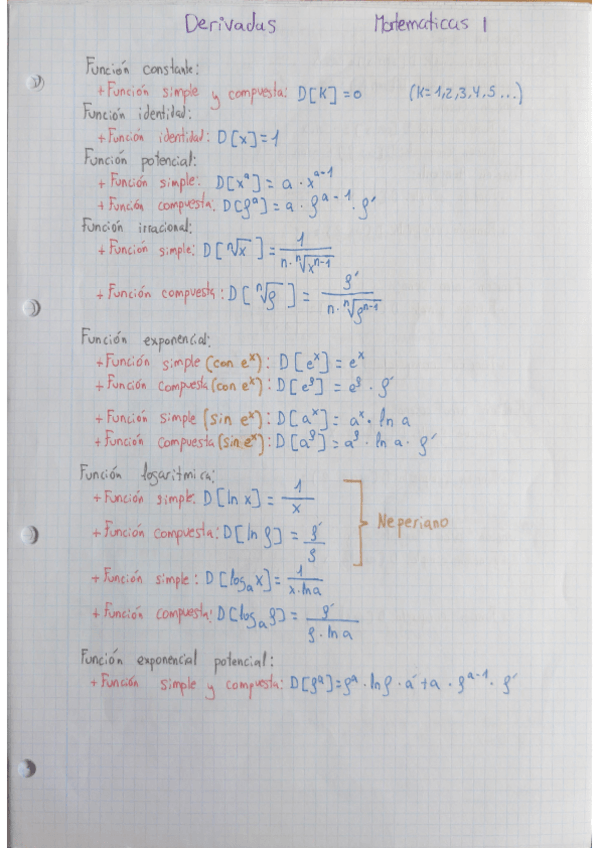 Derivadas Matematicas 1
Función constante:
+ Función simple y compuesta: D[K]=0 (K=1,2,3,4,5...)
Función identidad:
+ Función identidad: D[x]=1
Función potencial:
+ Función simple: D[xᵃ] = a · xᵃ⁻¹
+ Función compuesta: D[fᵃ] = a · fᵃ⁻¹ · f'
Función irracional:
+ Función simple: D[ⁿ√x] = 1/(n·ⁿ√xⁿ⁻¹)
+ Función compuesta: D[ⁿ√f] = f'/(n·ⁿ√fⁿ⁻¹)
Función exponencial:
+ Función simple (con eˣ): D[eˣ] = eˣ
+ Función compuesta (con eˣ): D[eᶠ] = eᶠ · f'
+ Función simple (sin eˣ): D[aˣ] = aˣ · ln a
+ Función compuesta (sin eˣ): D[aᶠ] = aᶠ · ln a · f'
Función logaritmica:
+ Función simple: D[ln x] = 1/x
Neperiano
+ Función compuesta: D[ln f] = f'/f
+ Función simple: D[logₐx] = 1/(x·ln a)
+ Función compuesta: D[logₐf] = f'/(f·ln a)
Función exponencial potencial:
+ Función simple y compuesta: D[fᵃ]=fᵃ · ln f · a' + a · fᵃ⁻¹ · f'